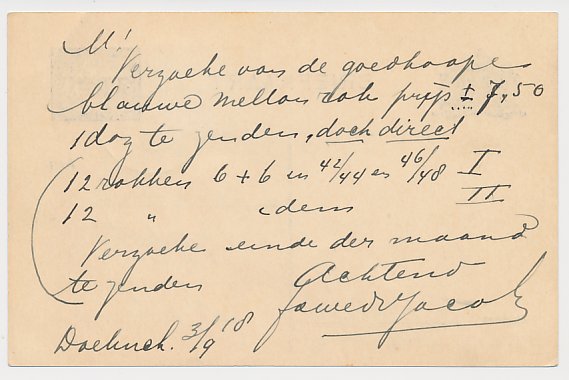 M!
Verzoeke van de goedkoope
blauwe mellon rok prijs ± 7,50
1 doz te zenden, doch direct
12 rokken 6 + 6 in 42/44 en 46/48 I
12 " idem II
Verzoeke einde der maand
te zenden
Achtend
Doetinch. 3/9 18